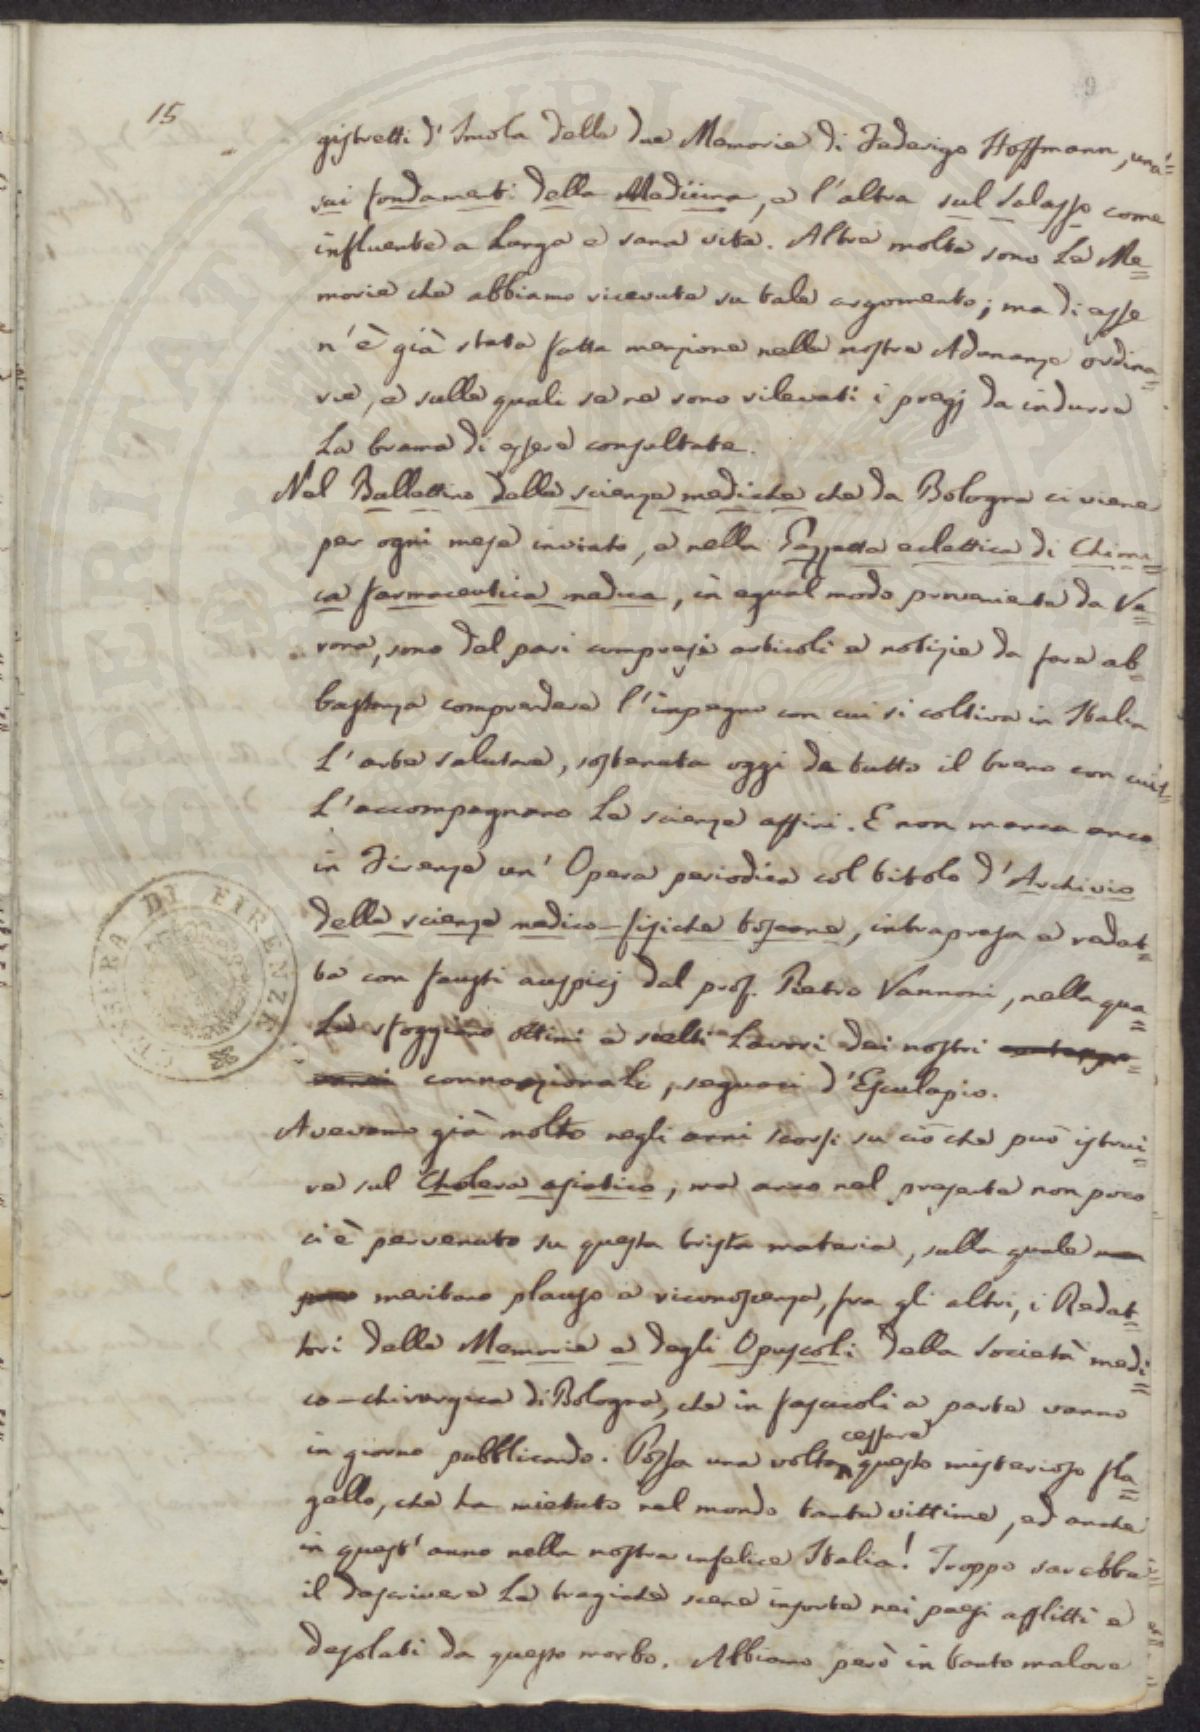 15
9
gistretti d'Imola delle due Memorie di Federigo Hoffmann, una=
sui fondamenti della Medicina, e l'altra sul Salasso come
influente a lunga e sana vita. Altre molte sono le Me=
morie che abbiamo ricevute su tale argomento; ma di esse
n'è già stata fatta menzione nelle nostre Adunanze ordina=
rie, e sulle quali se ne sono rilevati i pregj da indurre
la brama di essere consultate.
Nel Bullettino delle scienze mediche che da Bologna ci viene
per ogni mese inviato, e nella Gazzetta eclettica di Chimi=
ca farmaceutica medica, in egual modo proveniente da Ve=
rona, sono del pari compresi articoli e notizie da fare ab=
bastanza comprendere l'impegno con cui si coltiva in Italia
l'arte salutare, sostenuta oggi da tutto il buono con cui=
l'accompagnano le scienze affini. E non manca anco
in Firenze un' Opera periodica col titolo d'Archivio
delle scienze medico-fisiche toscane, intrapresa e redat=
ta con fausti auspicj dal prof. Pietro Vannoni, nella qua=
le sfoggiano ottimi e scelti lavori dei nostri
connazionali, seguaci d'Esculapio.
Avevamo già molto negli anni scorsi su ciò che può istrui=
re sul Cholera asiatico, ma anco nel presente non poco
ci è pervenuto su questa trista materia, sulla quale
meritano plauso e riconoscenza, fra gli altri, i Redat=
tori delle Memorie e degli Opuscoli della Società medi=
co-chirurgica di Bologna, che in fascicoli a parte vanno
in giorno pubblicando. Possa una volta cessare questo misterioso fla=
gello, che ha mietuto nel mondo tante vittime, ed anche
in quest'anno nella nostra infelice Italia! Troppo sarebbe
il descrivere le tragiche scene insorte nei paesi afflitti e
desolati da questo morbo. Abbiamo però in tanto malore
DI FIRENZE